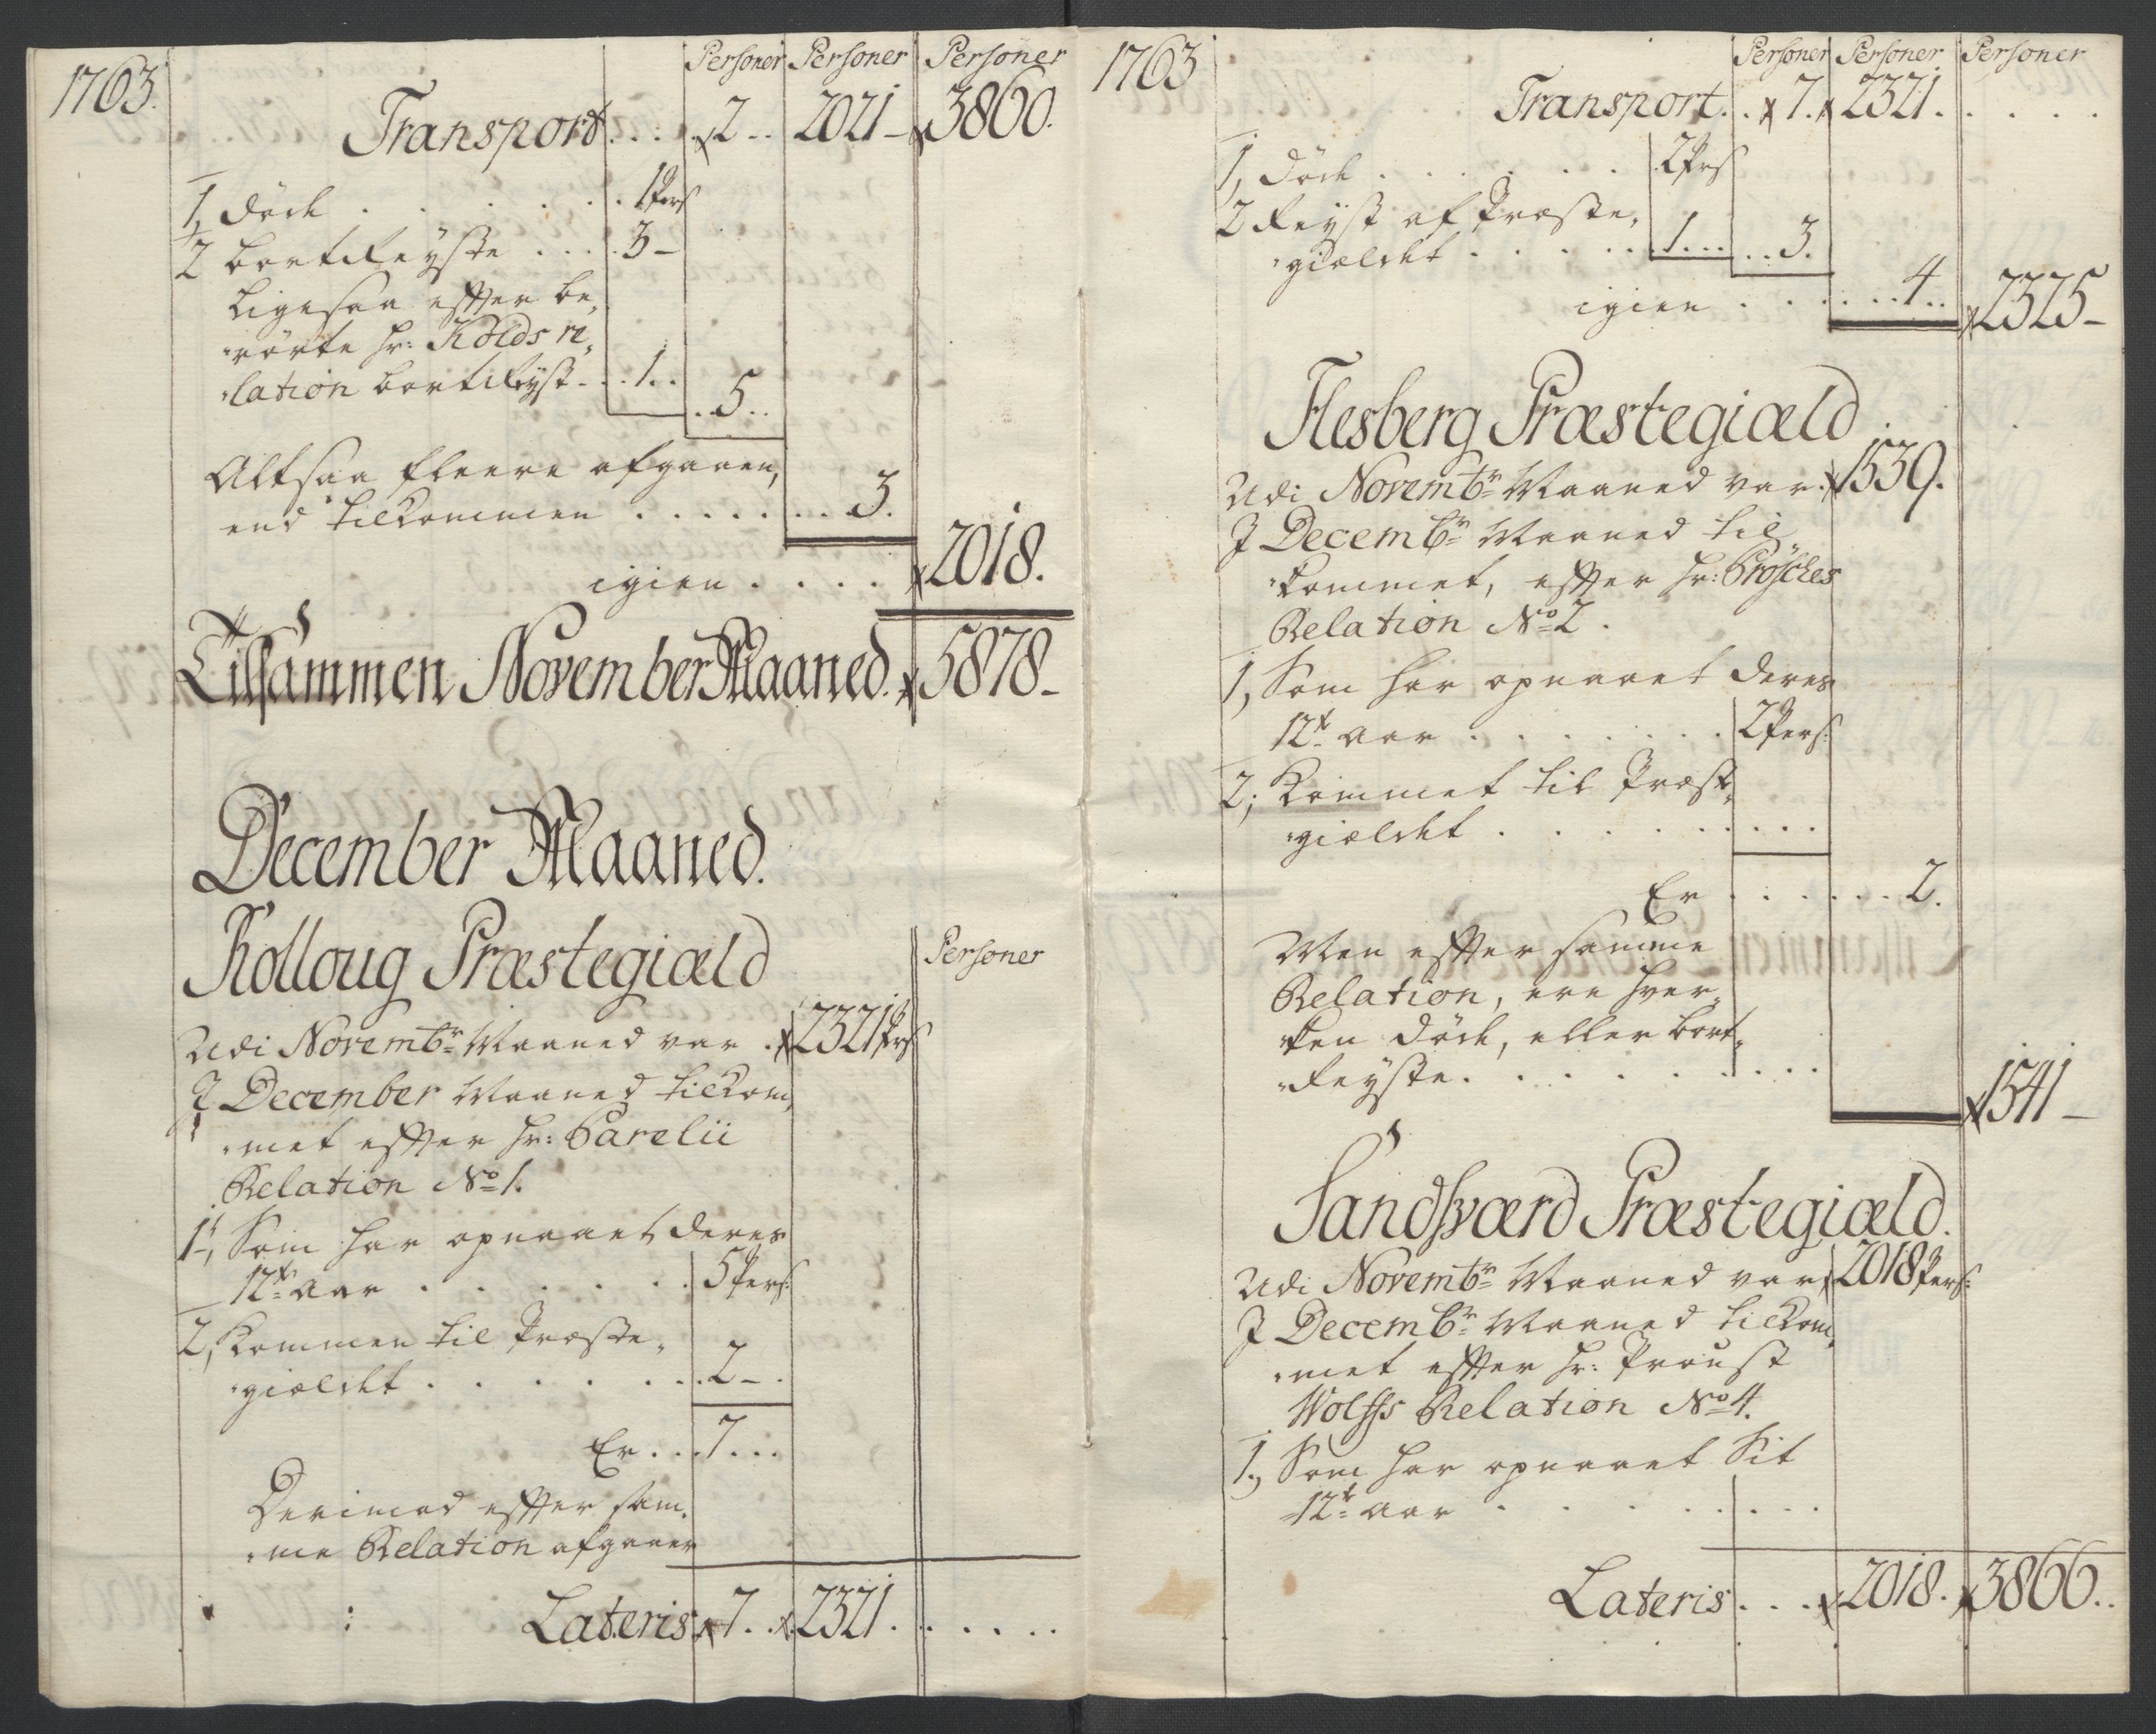 1763.
Personer Personer Personer
Transport . . . 2 . . 2021 - 3860.
1, Döde . . . . . . 1 Pers
2 bortReyste . . . . 3 -
Ligesaa efter be,
"rörte Hr: Kolds re,
"lation bortReyst . . . 1 . . 5 . .
Altsaa fleere afgaaen,
end tilkommen . . . . . . . . 3.
igien . . . . 2018.
Tilsammen November Maaned. 5878 -
December Maaned.
Rolloug Præstegiæld
Personer
Udi Novembr Maaned var . 2321 Prs
J December Maaned tilkom,
"met efter Hr: Parelii
Relation No 1.
1, Som har opnaaet deres
12te Aar . . . . . . 5 Pers:
2, Kommen til Præste,
"giældet . . . . . . . 2 - .
Er . . . 7 . . .
Derimod efter sam,
"me Relation afgaaen
Lateris 7 . . 2321 . . . . . .
1763
Personer Personer Personer
Transport . . 7 . 2321 . . . . .
1, Döde . . . . . . 2 Prs
2 Reyst af Præste,
"giældet . . . . . . 1 . . . . . 3.
igien . . . . . . . 4 . . 2325 -
Flesberg Præstegiæld
Udi Novembr Maaned var . 1539.
J Decembr Maaned til,
"kommet, efter Hr: Bröschers
Relation No 2.
1, Som har opnaaet deres
12te Aar . . . . . . . 2 Pers:
2, Kommet til Præst,
"giældet . . . . . . . . .
Er . . . . . . . 2.
Men efter samme
Relation, ere hver,
"ken Döde, eller bort,
"Reyste . . . . . . . . . 1541 -
Sandsværd Præstegiæld.
Udi Novembr Maaned var 2018 Pers:
J Decembr Maaned tilkom,
"met efter Hr: Proust
Wolffs Relation No 4.
1, Som har opnaaet Sit
12te Aar . . . . . . . .
Lateris . . . 2018 . 3866 . .